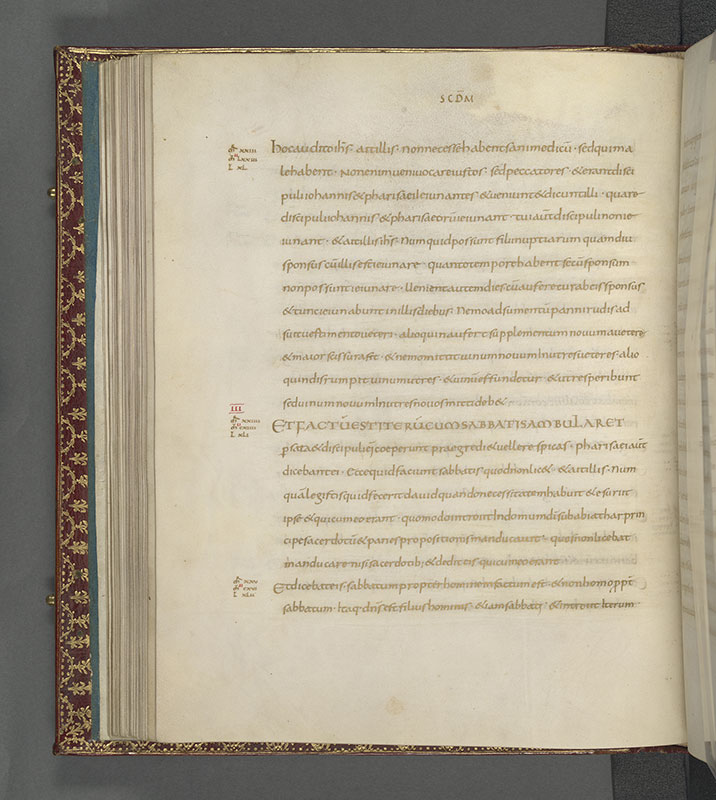 SCDM
Hoc audito ihs aitillis · non necesse habent sani medicū · sed qui ma
le habent · Non enim veni vocare iustos · sed peccatores & erant disci
puli iohannis & pharisaei ieiunantes & veniunt & dicunt illi · quare
discipuli iohannis & pharisaeorū ieiunant · tui aūt discipuli non ie
iunant · & aitillis ihs · Numquid possunt filii nuptiarum quamdiu
sponsus cū illis est ieiunare · quanto tempore habent secū sponsum
non possunt ieiunare · Uenient autem dies cū auferetur ab eis sponsus
& tunc ieiunabunt in illis diebus · Nemo adsumentū panni rudis ad
suit vestimento veteri · alioquin aufert supplementum novum a vetere
& maior scissura fit · & nemo mittit vinum novum In utres veteres · alio
quin disrumpit vinum utres · & vinū effundetur · & utres peribunt
sed vinum novum In utres novos mitti deb&·
III
ET FACTŪ EST ITERŪ CUM SABBATIS AMBULARET
p sata & discipuli ei coeperunt praegredi & vellere spicas · pharisaei aūt
dicebant ei · Ecce quid faciunt sabbatis quod non lic& · & aitillis · Num
quā legistis quid fecerit david quando necessitatem habuit & esuriit
ipse & qui cum eo erant · quomodo introiit In domum dī sub abiathar prin
cipe sacerdotū & panes propositionis manducavit · quos non licebat
manducare nisi sacerdotib; & dedit eis qui cum eo erant
Et dicebat eis · sabbatum propter hominem factum est · & non homo ppt
sabbatum · Itaq· dns est filius hominis · & iam sabbati · & introiit Iterum